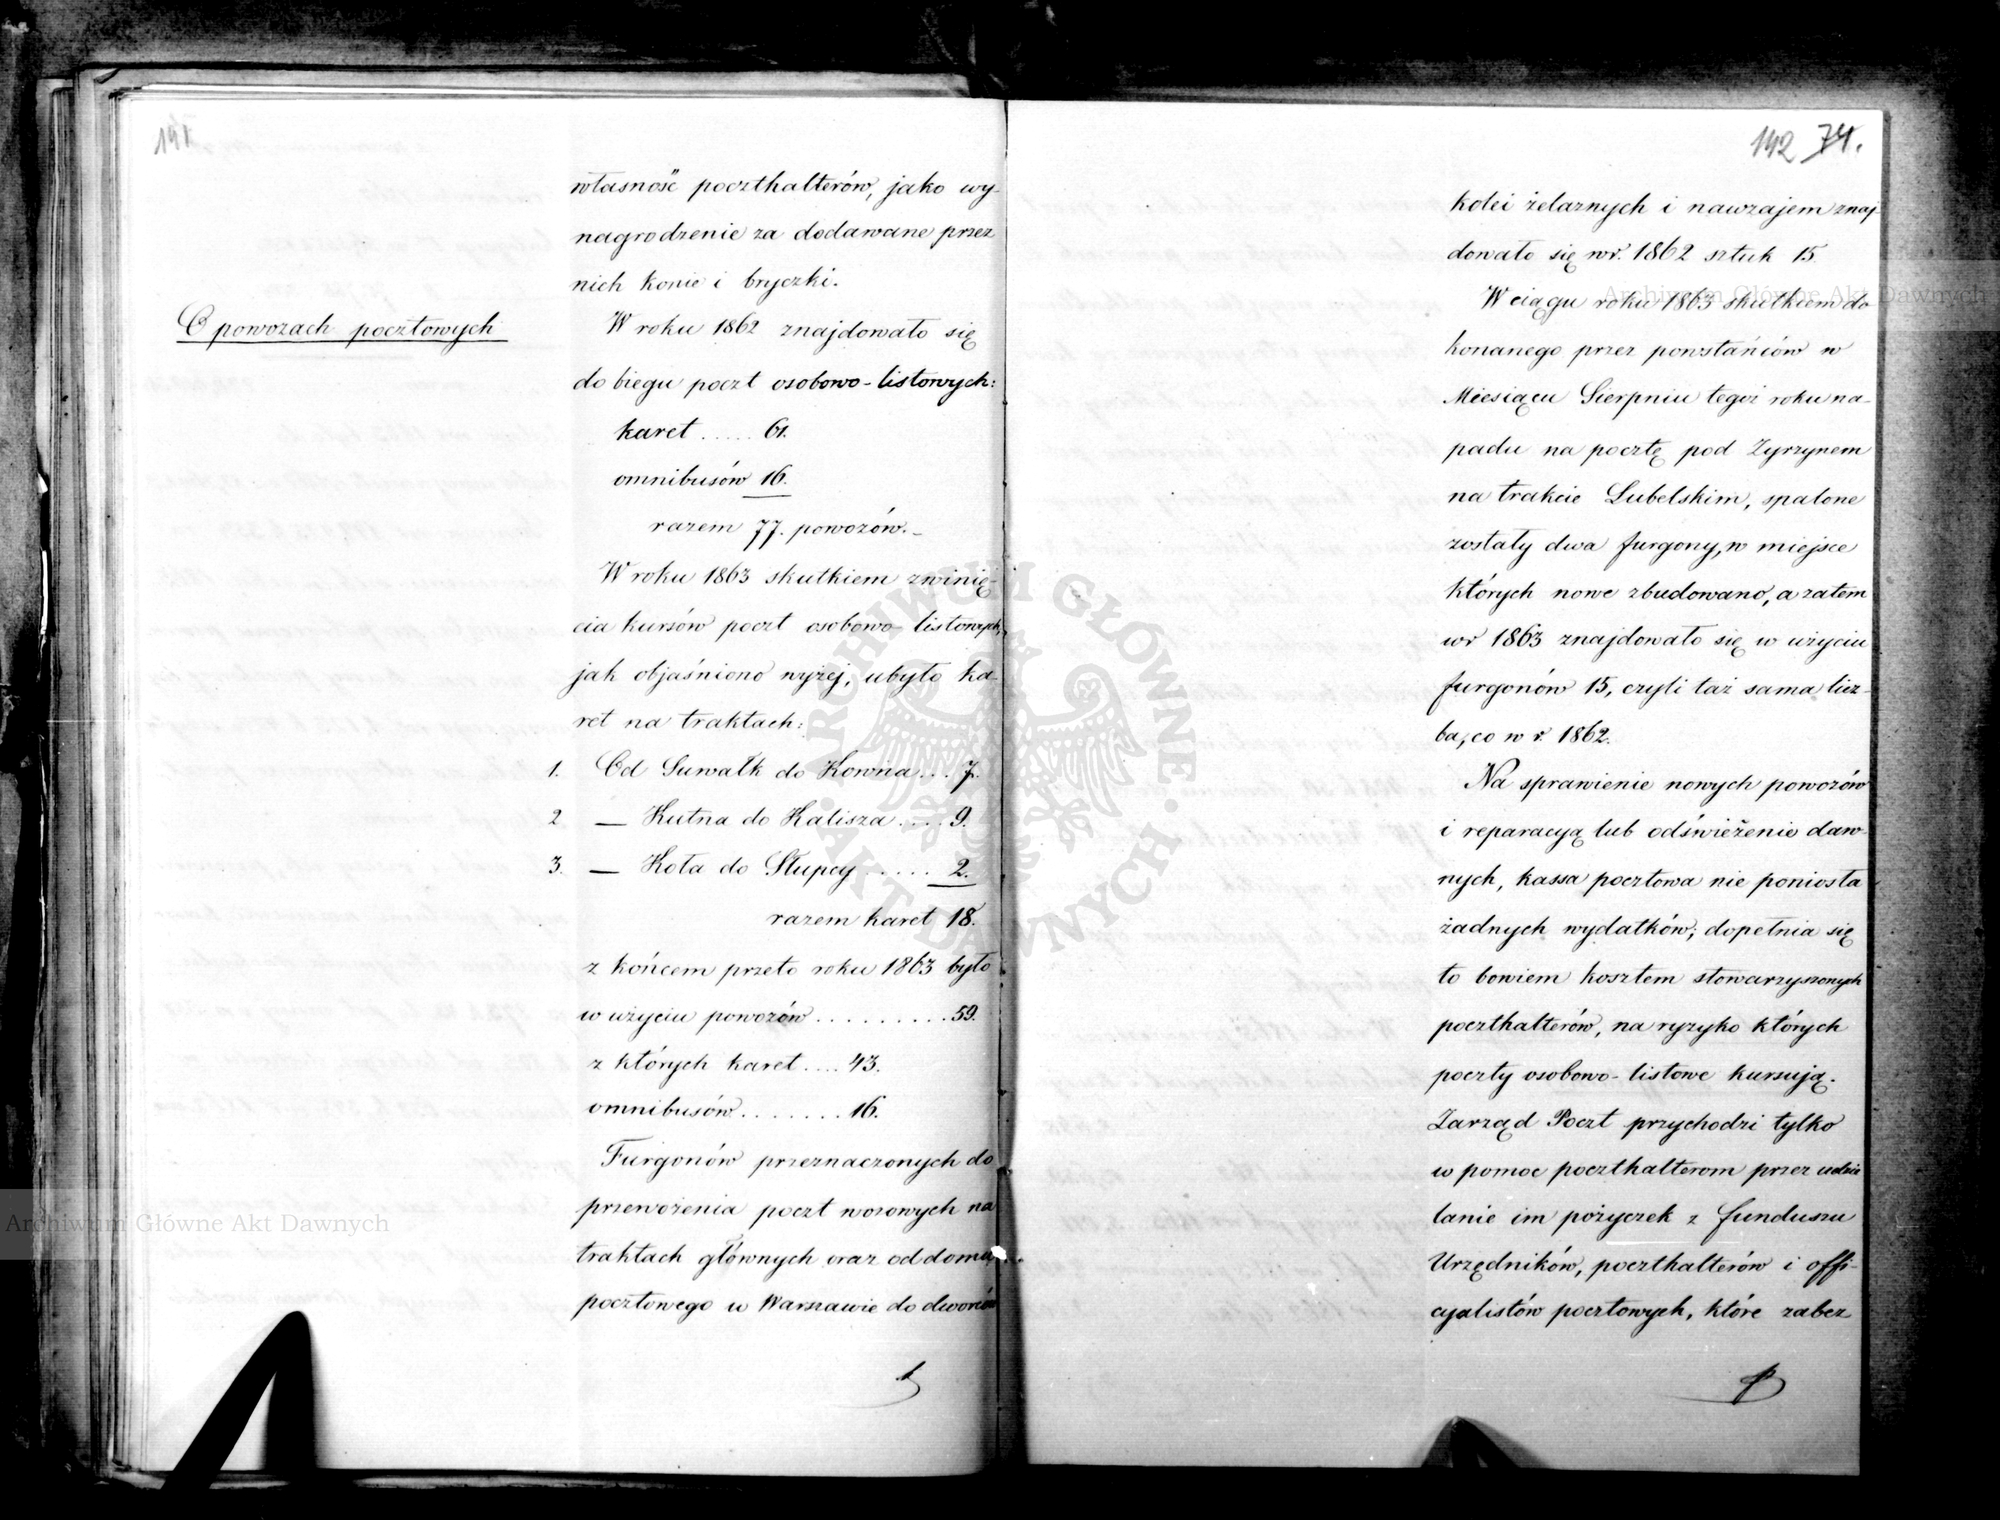 141
własność poczthalterów, jako wy-
nagrodzenie za dodawane przez
nich konie i bryczki.
O powozach pocztowych
W roku 1862 znajdowało się
do biegu poczt osobowo-listowych:
karet ..... 61.
omnibusów 16.
razem 77. powozów.-
W roku 1863 skutkiem zwinię-
cia kursów poczt osobowo-listowych,
jak objaśniono wyżej, ubyło ka-
ret na traktach:
1. Od Suwałk do Kowna ... 7.
2 — Kutna do Kalisza .... 9.
3. — Koła do Słupcy ..... 2.
razem karet 18.
z końcem przeto roku 1863 było
w użyciu powozów ......... 59.
z których karet .... 43.
omnibusów ....... 16.
Furgonów przeznaczonych do
przewożenia poczt wozowych na
traktach głównych oraz od domu
pocztowego w Warszawie do dworców
142 74.
kolei żelaznych i nawzajem znaj-
dowało się w r. 1862 sztuk 15
W ciągu roku 1863 skutkiem do
konanego przez powstańców w
Miesiącu Sierpniu tegoż roku na-
padu na pocztę pod Żyrzynem
na trakcie Lubelskim, spalone
zostały dwa furgony, w miejsce
których nowe zbudowano, a zatem
w r 1863 znajdowało się w użyciu
furgonów 15, czyli taż sama licz-
ba, co w r. 1862.
Na sprawienie nowych powozów
i reparacyą lub odświeżenie daw-
nych, kassa pocztowa nie poniosła
żadnych wydatków; dopełnia się
to bowiem kosztem stowarzyszonych
poczthalterów, na ryzyko których
poczty osobowo-listowe kursują.
Zarząd Poczt przychodzi tylko
w pomoc poczthalterom przez udzie
lanie im pożyczek z funduszu
Urzędników, poczthalterów i offi-
cyalistów pocztowych, które zabez
Archiwum Główne Akt Dawnych
Archiwum Główne Akt Dawnych
ARCHIWUM GŁÓWNE · AKT DAWNYCH ·